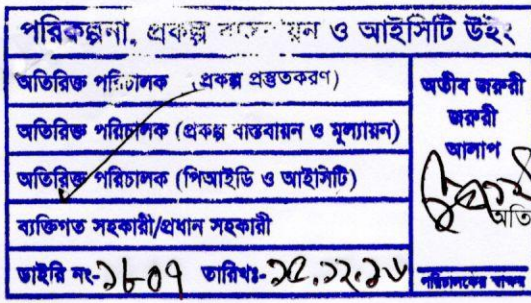 পরিকল্পনা, প্রকল্প বাস্তবায়ন ও আইসিটি উইং
অতিরিক্ত পরিচালক (প্রকল্প প্রস্তুতকরণ)
অতিরিক্ত পরিচালক (প্রকল্প বাস্তবায়ন ও মূল্যায়ন)
অতিরিক্ত পরিচালক (পিআইডি ও আইসিটি)
ব্যক্তিগত সহকারী/প্রধান সহকারী
ডাইরি নং- তারিখঃ-
অতীব জরুরী
জরুরী
আলাপ
অতি
পরিচালকের স্বাক্ষর